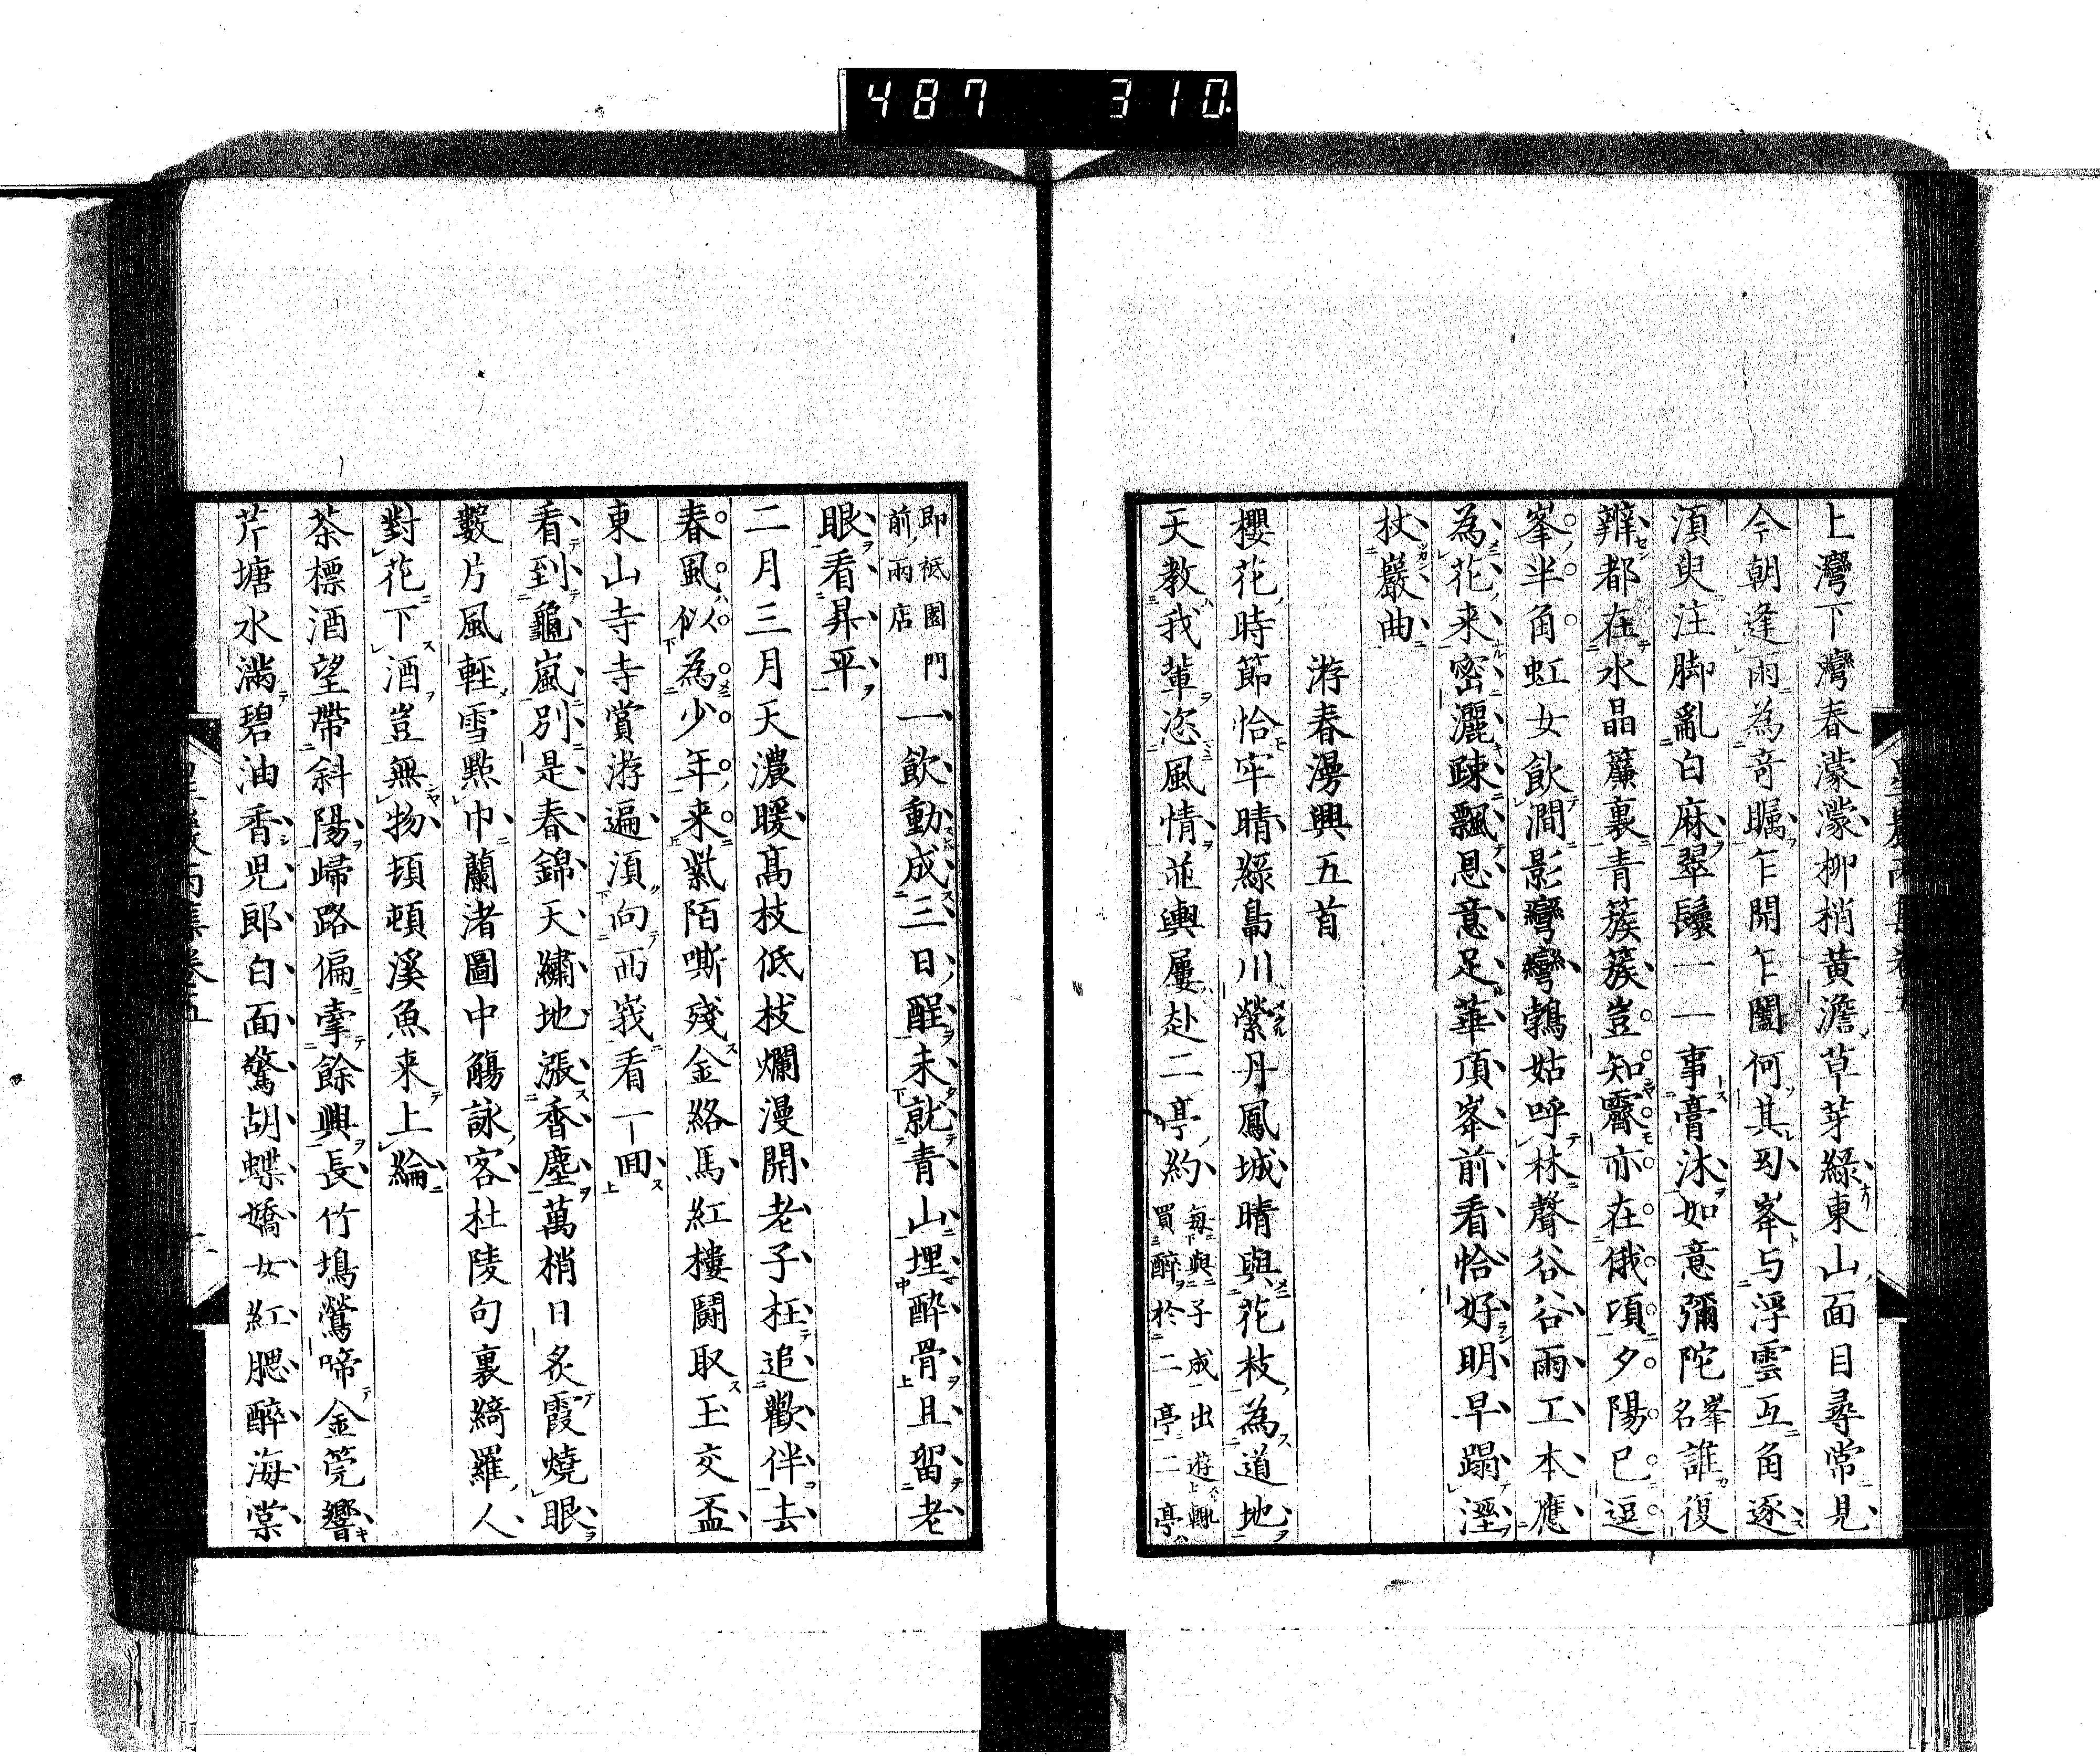 487 310
上灣下灣春濛濛柳梢黃澹草芽綠東山面目尋常見
今朝逢雨為奇矚乍開乍闔何其勁峯与浮雲互角逐
湏臾注脚亂白麻翠鬟一一事膏沐如意彌陀峯名誰復
辨都在水晶簾裏青簇簇豈知霽亦在俄頃夕陽已逗
峯半角虹女飲澗影彎彎鶉姑呼林聲谷谷雨工本應
為花来密灑疎飄恩意足華頂峯前看恰好明早蹋溼
杖巖曲
游春漫興五首
櫻花時節恰牢晴綠鳥川縈丹鳳城晴與花枝為道地
天教我輩恣風情並輿屢赴二亭約每與子成出遊輒買醉於二亭二亭
即祗園門前兩店一飲動成三日酲未就青山埋醉骨且留老
眼看昇平
二月三月天濃暖高枝低枝爛漫開老子枉追歡伴去
春風似為少年来紫陌嘶殘金絡馬紅樓鬪取玉交盃
東山寺寺賞游遍湏向西峩看一囬
看到龜嵐別是春錦天繡地漲香塵萬梢日炙霞燒眼
數片風輕雪點巾蘭渚圖中觴詠客杜陵句裏綺羅人
對花下酒豈無物頓頓溪魚来上綸
茶標酒望帶斜陽歸路偏牽餘興長竹塢鶯啼金筦響
芹塘水滿碧油香兒郎白面驚胡蝶嬌女紅腮醉海棠